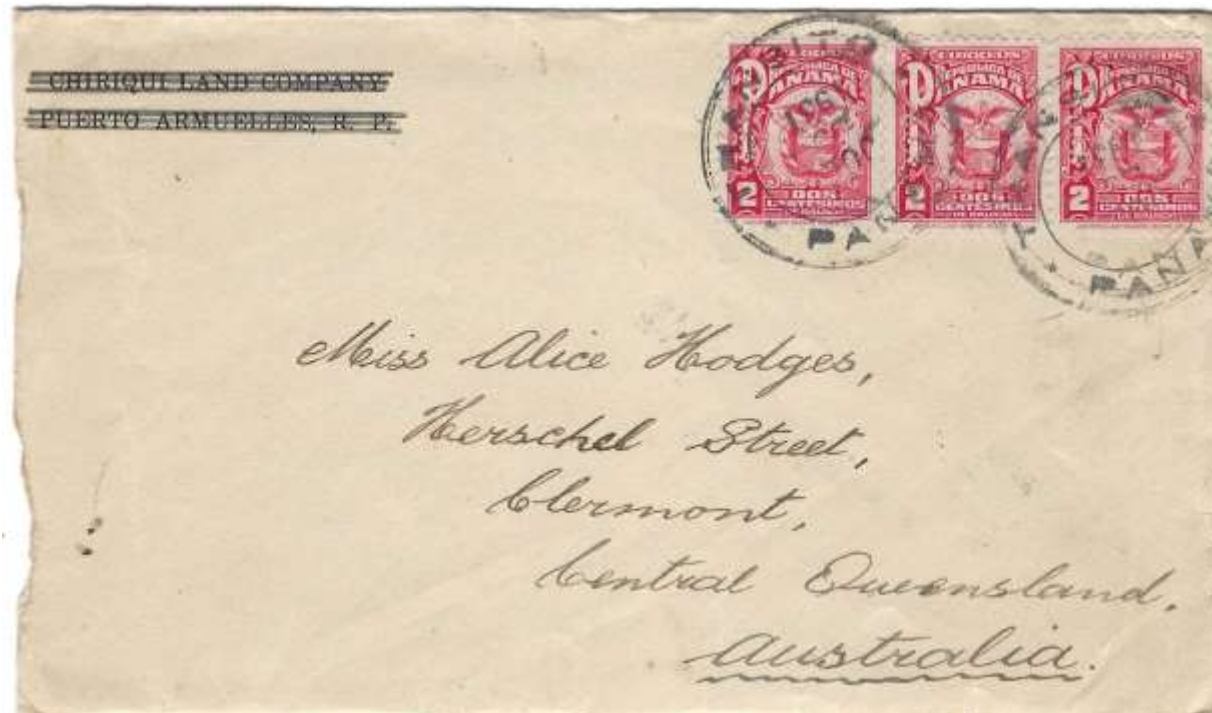 CHIRIQUI LAND COMPANY
PUERTO ARMUELLES, R. P.
CORREOS
REPUBLICA DE
PANAMA
2
DOS
CENTESIMOS
DE BALBOA
CORREOS
REPUBLICA DE
PANAMA
2
DOS
CENTESIMOS
DE BALBOA
CORREOS
REPUBLICA DE
PANAMA
2
DOS
CENTESIMOS
DE BALBOA
PANA
Miss Alice Hodges,
Herschel Street,
Clermont,
Central Queensland,
Australia.